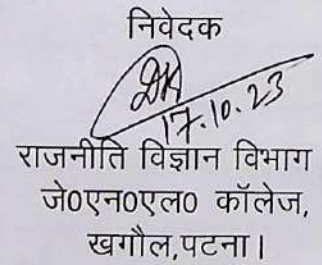 निवेदक
17.10.23
राजनीति विज्ञान विभाग
जे०एन०एल० कॉलेज,
खगौल,पटना।